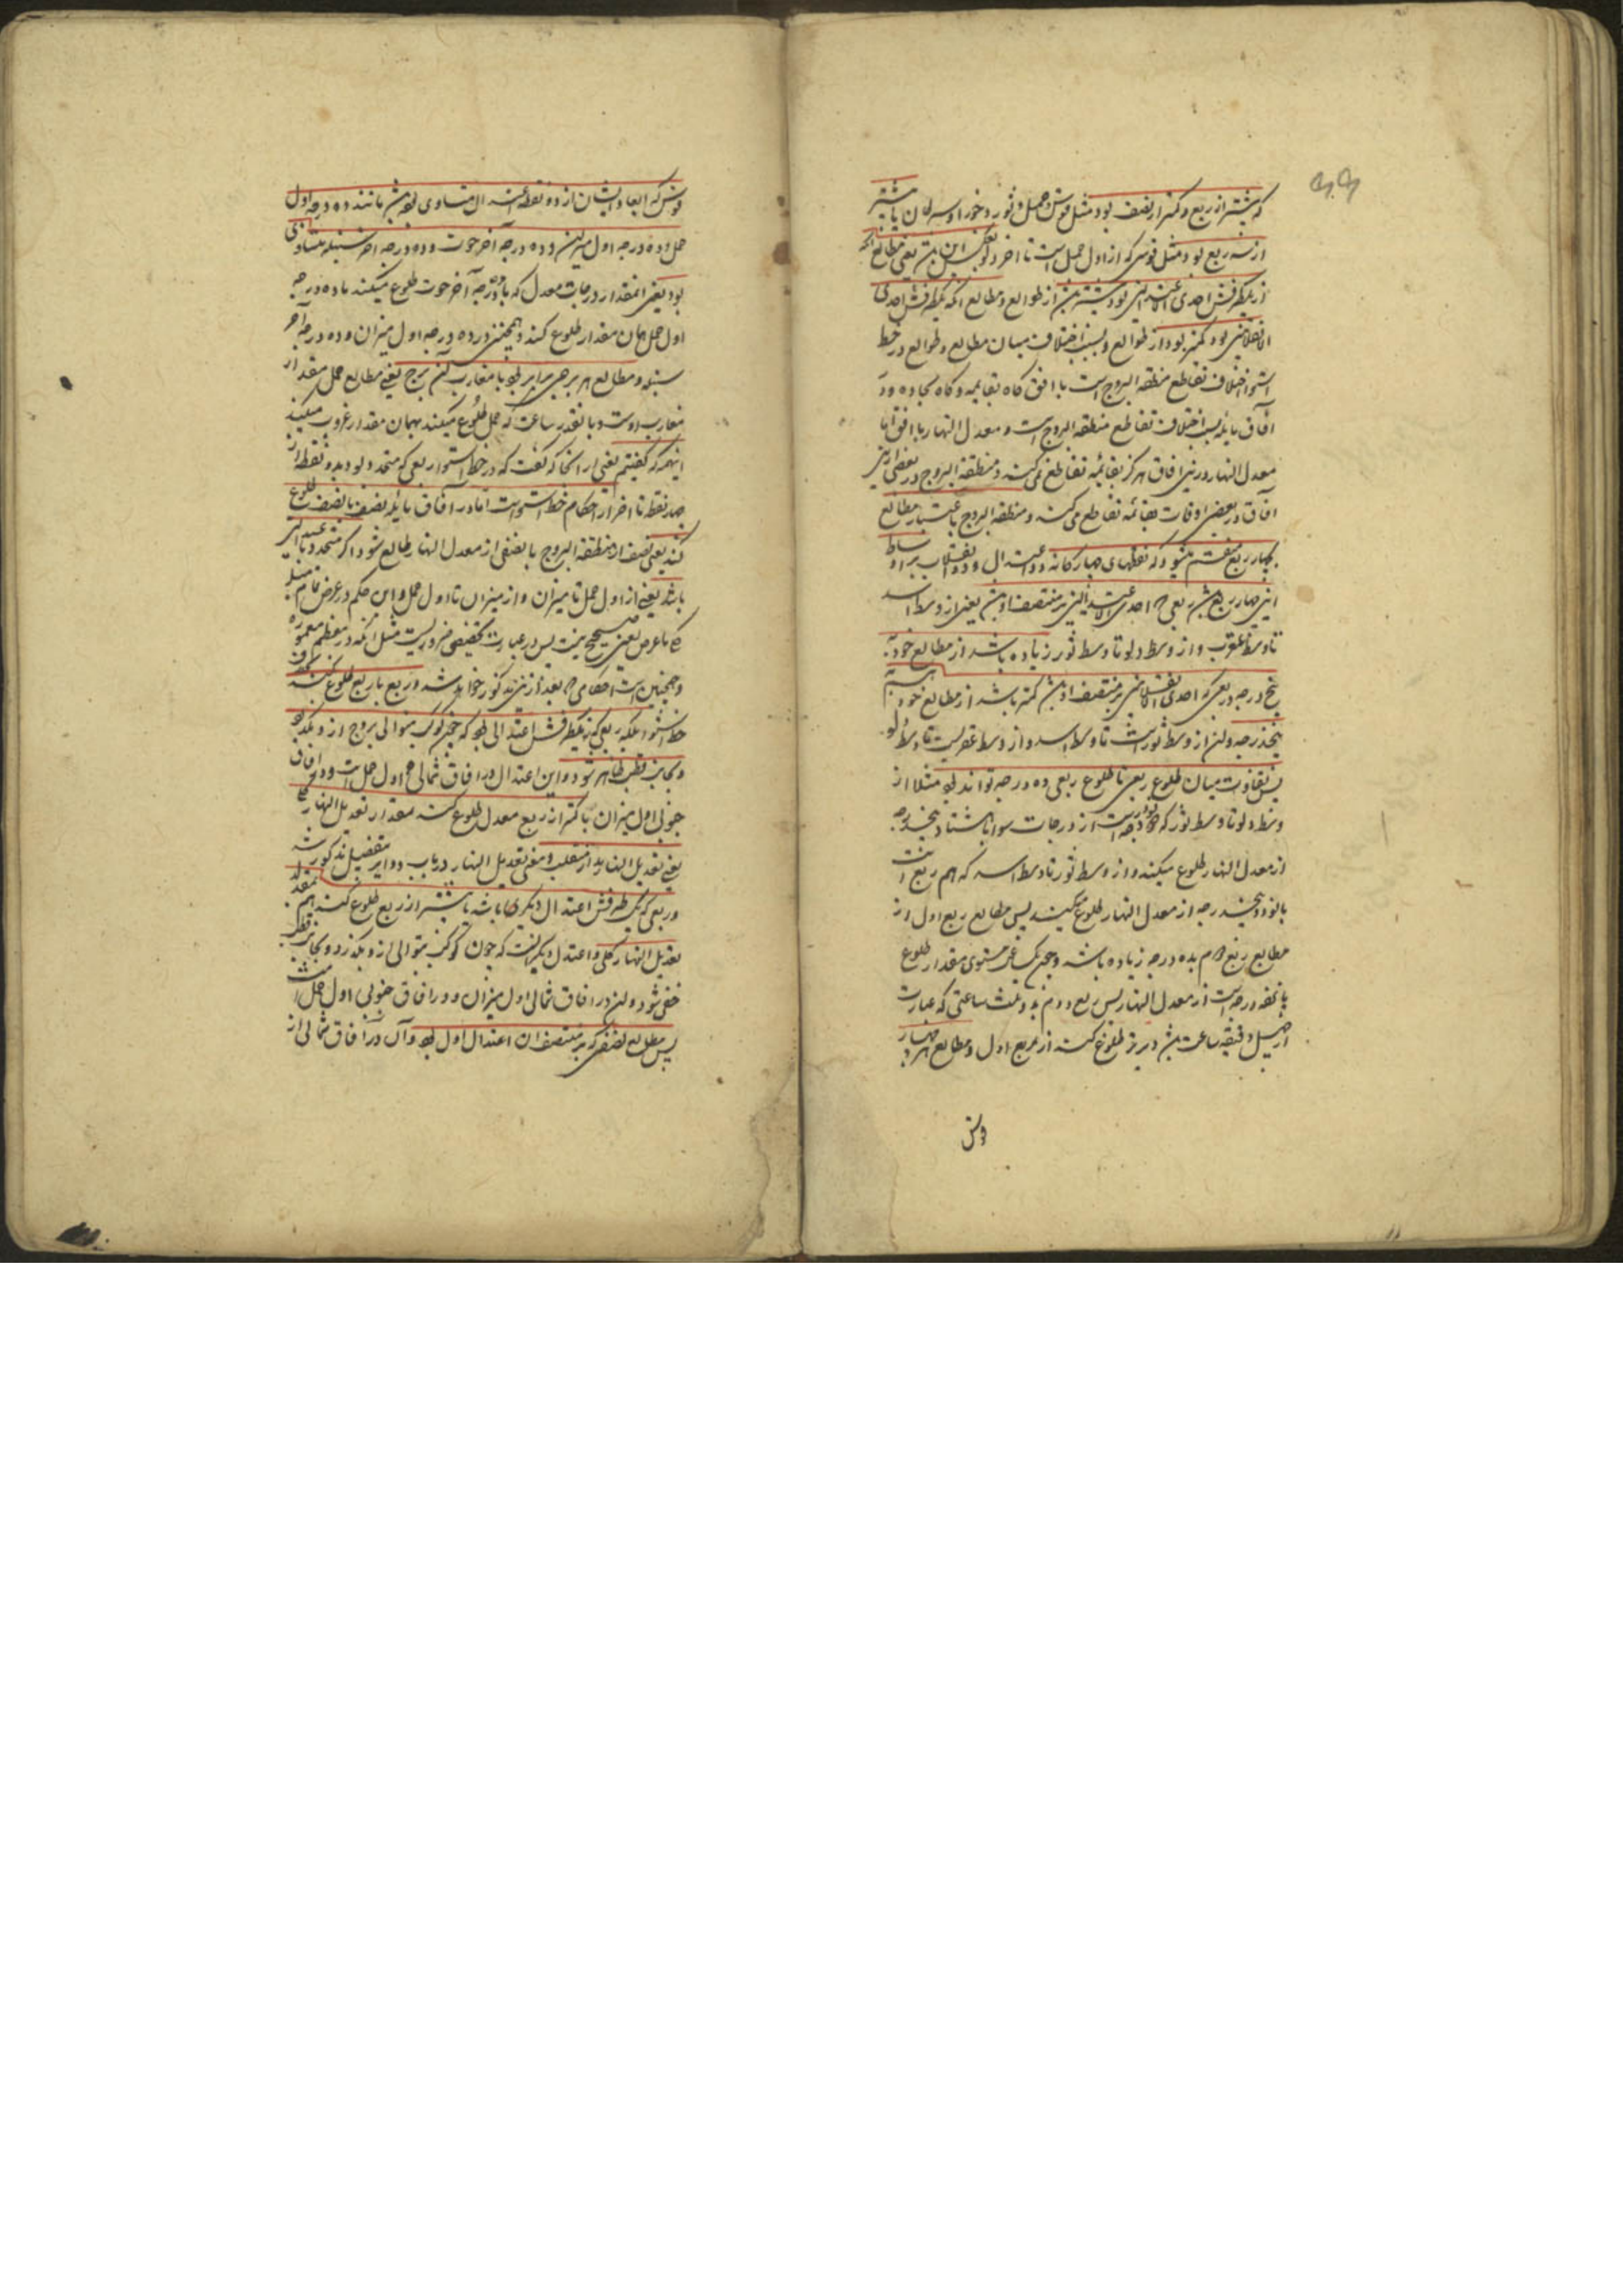 که بیشتر از ربع و کمتر از نصف بود مثل قوس حمل و ثور و جوزا و سرطان یا بیشتر
از سه ربع بود مثل قوسی که از اول حمل است تا آخر دلو بعکس این بعنی مطالع آنچه
از یکطرفش احدی الاعتدالین بود بیشتر از طوالع و مطالع آنکه یکطرفش احدی
الانقلابین بود کمتر بود از طوالع و سبب اختلاف میان مطالع و طوالع در خط
استوا اختلاف تقاطع منطقة البروج است با افق گاه بقایمه و گاه بحاده و در
آفاق مایله سبب اختلاف تقاطع منطقة البروج است و معدل النهار با افق اما
معدل النهار درین آفاق هرگز بقائمه تقاطع نمی کند و منطقة البروج در بعضی ازین
آفاق در بعضی اوقات بقائمه تقاطع می کند و منطقة البروج باعتبار مطالع
بچهار ربع منقسم میشود که نقطهای چهارگانه دو اعتدال و دو انقلاب بر اوساط
این چهار ربع باشند ربعی که احدی الاعتدالین بر منتصف او بعنی از وسط اسد
تا وسط عقرب و از وسط دلو تا وسط ثور زیاده باشد از مطالع خود به
پنج درجه و ربعی که احدی الانقلابین بر منتصف او کمتر باشد از مطالع خود به
پنجدرجه و این از وسط ثورست تا وسط اسد و از وسط عقربست تا وسط دلو
پس تفاوت میان طلوع ربعی تا طلوع ربعی ده درجه تواند بود مثلا از
وسط دلو تا وسط ثور که نود درجه است از درجات سوا با هشتاد و پنجدرجه
از معدل النهار طلوع میکند و از وسط ثور تا وسط اسد که هم ربع است
با نود و پنجدرجه از معدل النهار طلوع میکند پس مطالع ربع اول از
مطالع ربع دوم بده درجه زیاده باشد و چون یکساعت مستوی مقدار طلوع
پانزده درجه است از معدل النهار پس ربع دوم بدو ثلث ساعتی که عبارت
از چهل دقیقه ساعت دیرتر طلوع کند از ربع اول و مطالع هر چهار
قوس
قوس که ابعاد ایشان از دو نقطه اعتدال متساوی بود مانند ده درجه اول
حمل و ده درجه اول میزان و ده درجه آخر حوت و ده درجه آخر سنبله متساوی
بود یعنی آنمقدار درجات معدل که با ده درجه آخر حوت طلوع میکند با ده درجه
اول حمل همان مقدار طلوع کند و همچنین در ده درجه اول میزان و ده درجه آخر
سنبله و مطالع هر برجی برابر بود با مغارب آن برج یعنی مطالع حمل مقدار
مغارب اوست و بآنقدر ساعت که حمل طلوع میکند بهمان مقدار غروب میکند
اینهمه که گفتیم یعنی از آنجا که گفت که در خط استوا ربعی که متحدد بود بدو نقطه از
چهار نقطه تا آخر از احکام خط استواست اما در آفاق مایله نصف با نصف طلوع
کند یعنی نصف از منطقة البروج با نصفی از معدل النهار طالع شود اگر متحدد باعتدالین
باشد یعنی از اول حمل تا میزان و از میزان تا اول حمل و این حکم در عرض تمام میل
کلی با عرض تسعین صحیح نیست پس در عبارت تخصیصی ضروریست مثل آنکه در معظم معموره
و همچنین است احکامی که بعد ازین مذکور خواهد شد و ربع با ربع طلوع نکند بخلاف
خط استوا بلکه ربعی که یکطرفش اعتدالی بود که چون کوکب بتوالی بروج از و بگذرد
و بجانب قطب ظاهر شود و این اعتدال در آفاق شمالی اول حمل است و در آفاق
جنوبی اول میزان با کمتر از ربع معدل طلوع کند بمقدار تعدیل النهار کلی
یعنی تعدیل النهار مدار منقلب و معنی تعدیل النهار در باب دوایر مفصل مذکور شد
و ربعی که یک طرفش اعتدال دیگر باشد با بیشتر از ربع طلوع کند هم بمقدار
تعدیل النهار کلی و اعتدال دیگر آنست که چون کوکب بتوالی از و بگذرد و بجانب قطب
خفی شود و این در آفاق شمالی اول میزان و در آفاق جنوبی اول حمل است
پس مطالع نصفی که بر منتصف آن اعتدال اول بود و آن در آفاق شمالی از